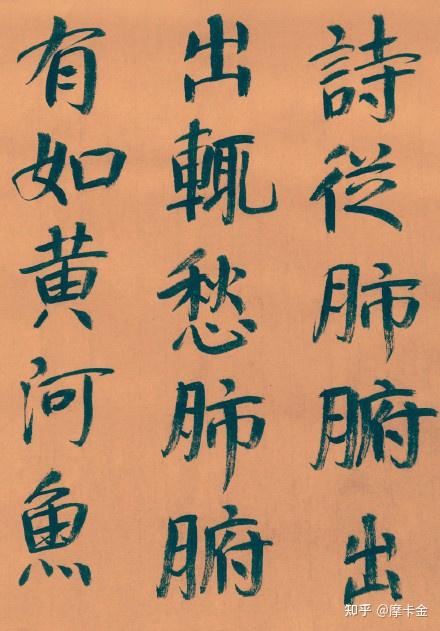 詩從肺腑出
出輒愁肺腑
有如黄河魚
知乎 @摩卡金